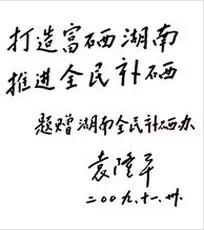 打造富硒湖南
推进全民补硒
题赠湖南全民补硒办
袁隆平
二00九.十一.卅.